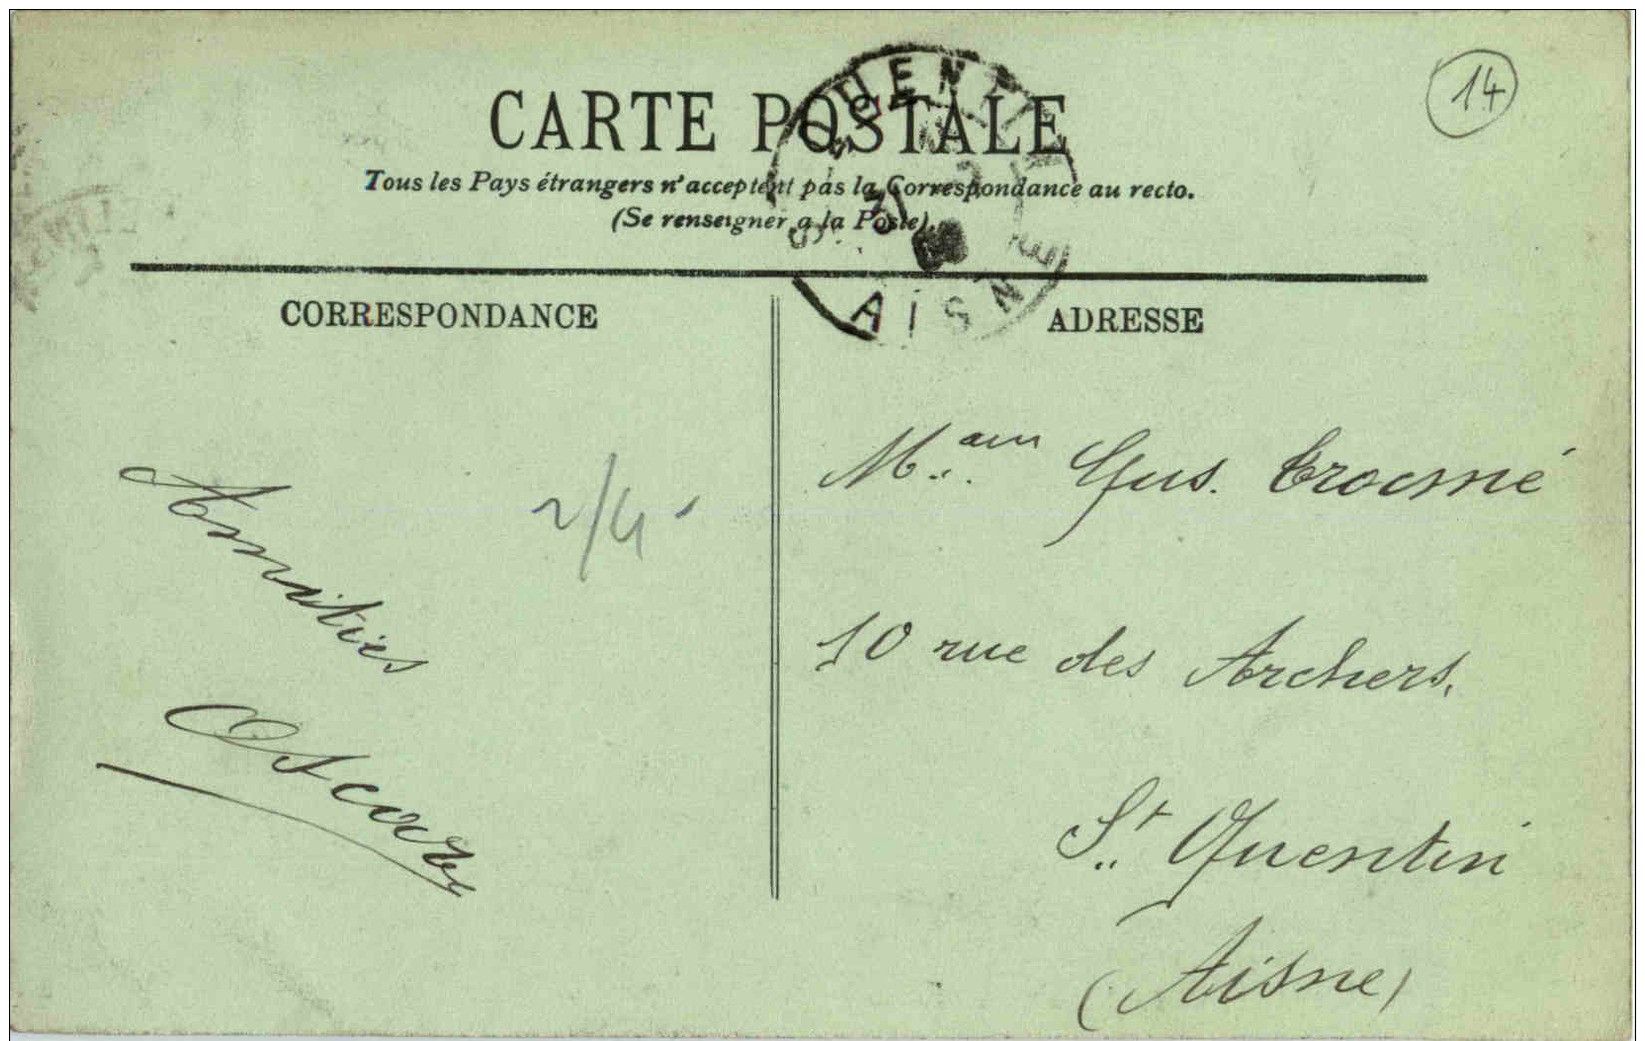 14
CARTE POSTALE
Tous les Pays étrangers n'acceptent pas la Correspondance au recto.
(Se renseigner a la Poste).
AISNE
CORRESPONDANCE
Amitiés
2/4
ADRESSE
M.am Gus. Trocmé
10 rue des Archers.
St Quentin
(Aisne)